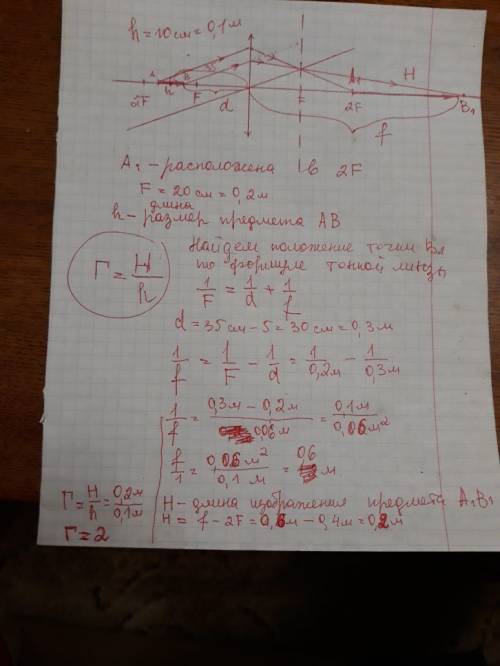 h = 10 см = 0,1 м
A B F d F A₁ H B₁
2F h 2F f
A₁ - расположена в 2F
F = 20 см = 0,2 м
длина
h - размер предмета AB
Найдем положение точки B₁
по формуле тонкой линзы
Г = H/h
1/F = 1/d + 1/f
d = 35 см - 5 = 30 см = 0,3 м
1/f = 1/F - 1/d = 1/0,2м - 1/0,3м
1/f = (0,3м - 0,2м)/0,06м = 0,1м/0,06м²
f/1 = 0,06м²/0,1м = 0,6 м
H - длина изображения предмета A₁B₁
H = f - 2F = 0,6м - 0,4м = 0,2м
Г = H/h = 0,2м/0,1м
Г = 2